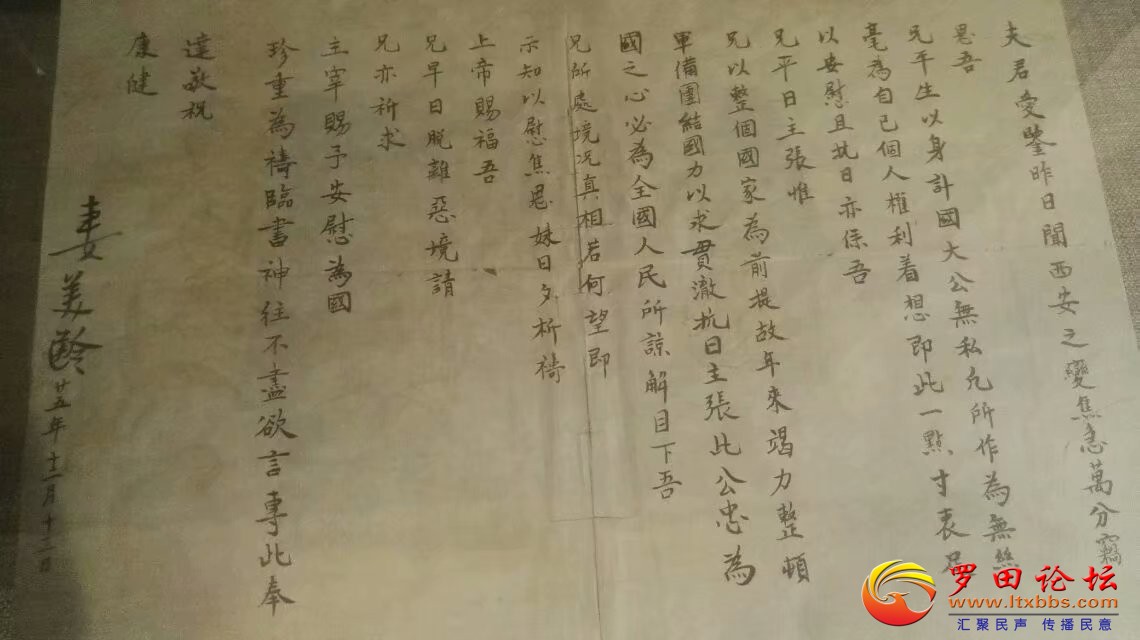 夫君愛鑒昨日聞西安之變焦急萬分竊
思吾
兄平生以身許國大公無私凡所作為無絲
毫為自己個人權利着想即此一點寸衷足
以安慰且抗日亦係吾
兄平日主張惟
兄以整個國家為前提故年來竭力整頓
軍備團結國力以求貫澈抗日主張此公忠為
國之心必為全國人民所諒解目下吾
兄所處境况真相若何望即
示知以慰焦思妹日夕祈禱
上帝賜福吾
兄早日脫離惡境請
兄亦祈求
主宰賜予安慰為國
珍重為禱臨書神往不盡欲言專此奉
達敬祝
康健
妻美齡 廿五年十二月十三日
罗田论坛
www.ltxbbs.com
汇聚民声 传播民意